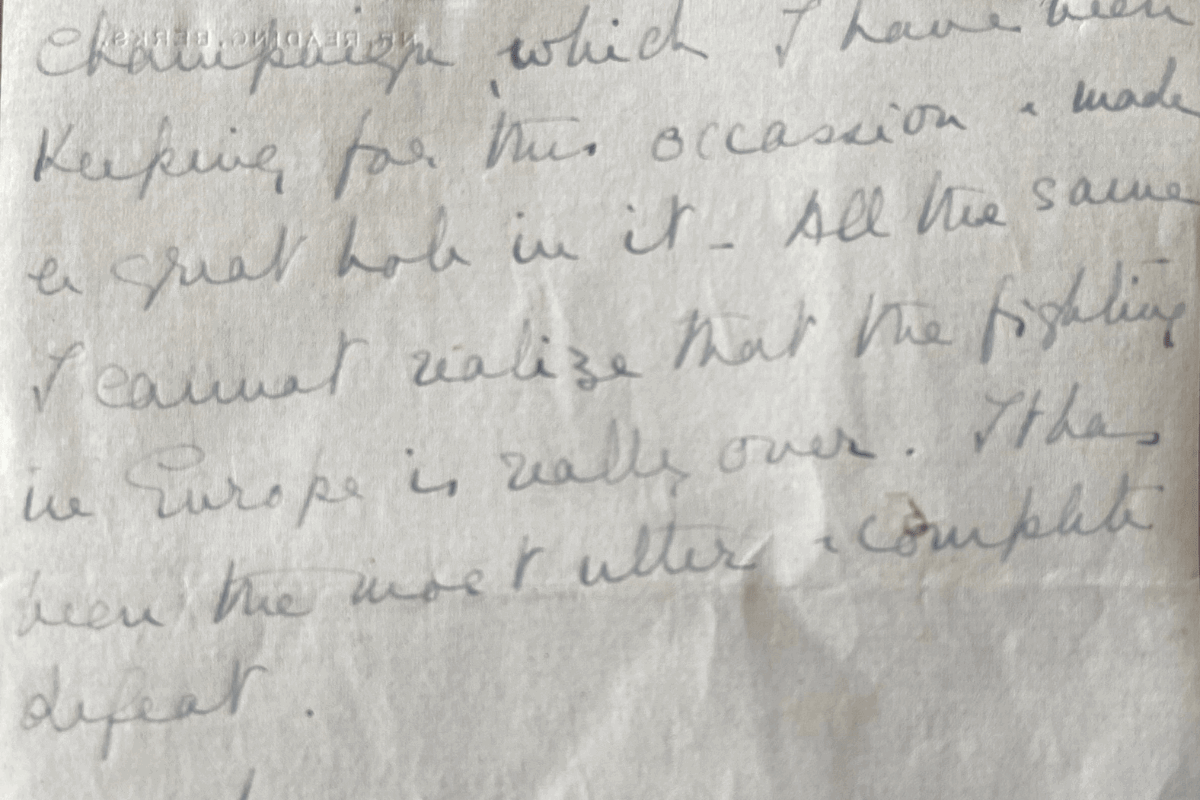 Champaign which I have been
Keeping for this occassion & made
a great hole in it - All the same
I cannot realize that the fighting
in Europe is really over. It has
been the most utter & complete
defeat.